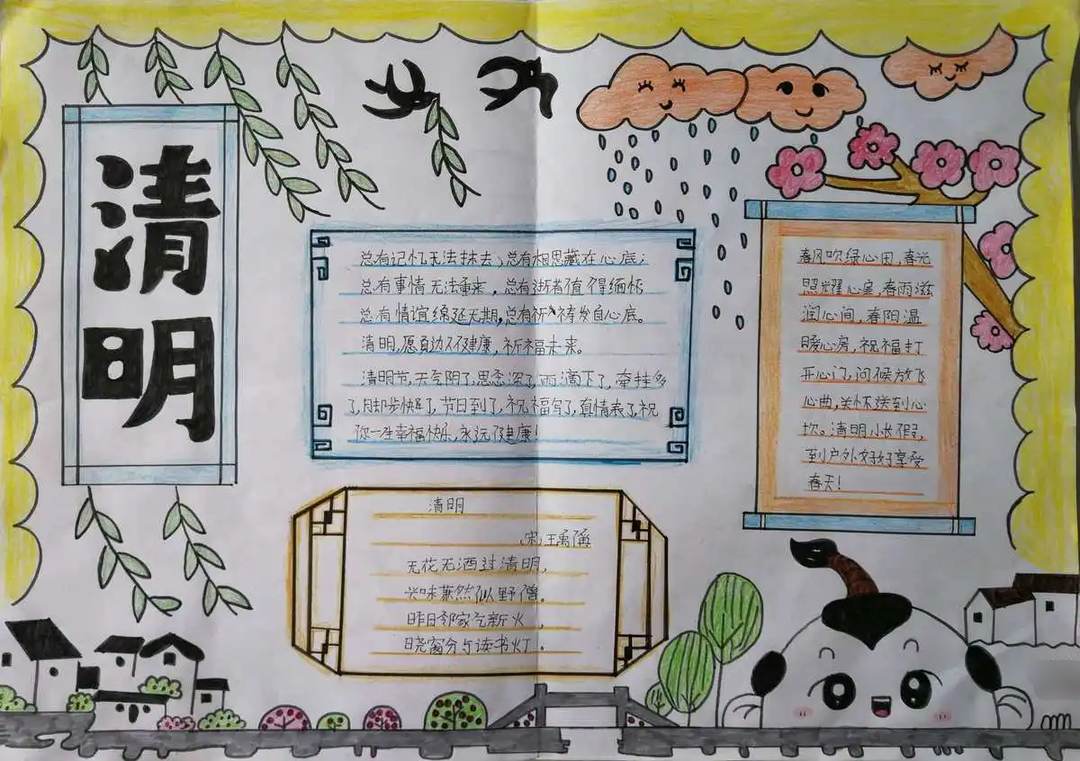 清明
总有记忆无法抹去，总有相思藏在心底；
总有事情无法重来，总有逝者值得缅怀
总有情谊绵延无期，总有祈祷发自心底。
清明，愿身边人健康，祈福未来。
清明节，天气阴了，思念深了，雨滴下了，牵挂多
了，脚步快了，节日到了，祝福写了，真情表了，祝
你一生幸福快乐，永远健康！
春风吹绿心田，春光
照耀心扉，春雨滋
润心间，春阳温
暖心房，祝福打
开心门，问候放飞
心曲，关怀送到心
坎。清明小长假，
到户外好好享受
春天！
清明
（宋）王禹偁
无花无酒过清明，
兴味萧然似野僧。
昨日邻家乞新火，
晓窗分与读书灯。